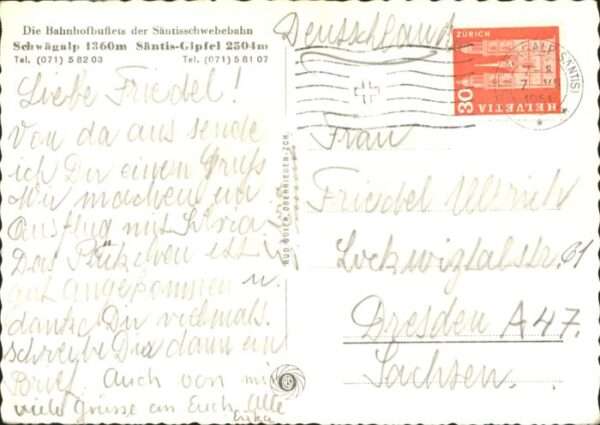 Die Bahnhofbuffets der Säntisschwebebahn
Schwägalp 1360m Säntis-Gipfel 2504m
Tel. (071) 5 82 03 Tel. (071) 5 81 07
Liebe Friedel!
Von da aus sende
ich Dir einen Gruß
Wir machen ein
Ausflug mit
Das ist
gut angekommen u.
danke Dir vielmals.
schreibe Dir dann ein
Brief. Auch von mir
viele Grüsse an Euch Alle
RUD. SUTER, OBERRIEDEN-ZCH.
Deutschland
ZÜRICH
30
HELVETIA
Frau
Friedel Ulbrich
Lockwitztalstr. 61
Dresden A 47.
Sachsen.